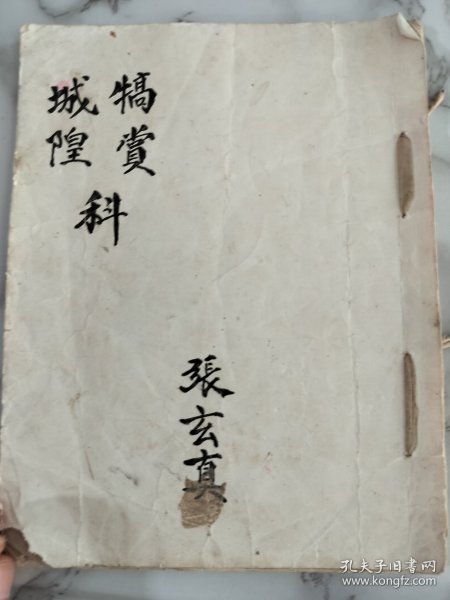 犒賞
城隍
科
張玄真
孔夫子旧書网
www.kongfz.com